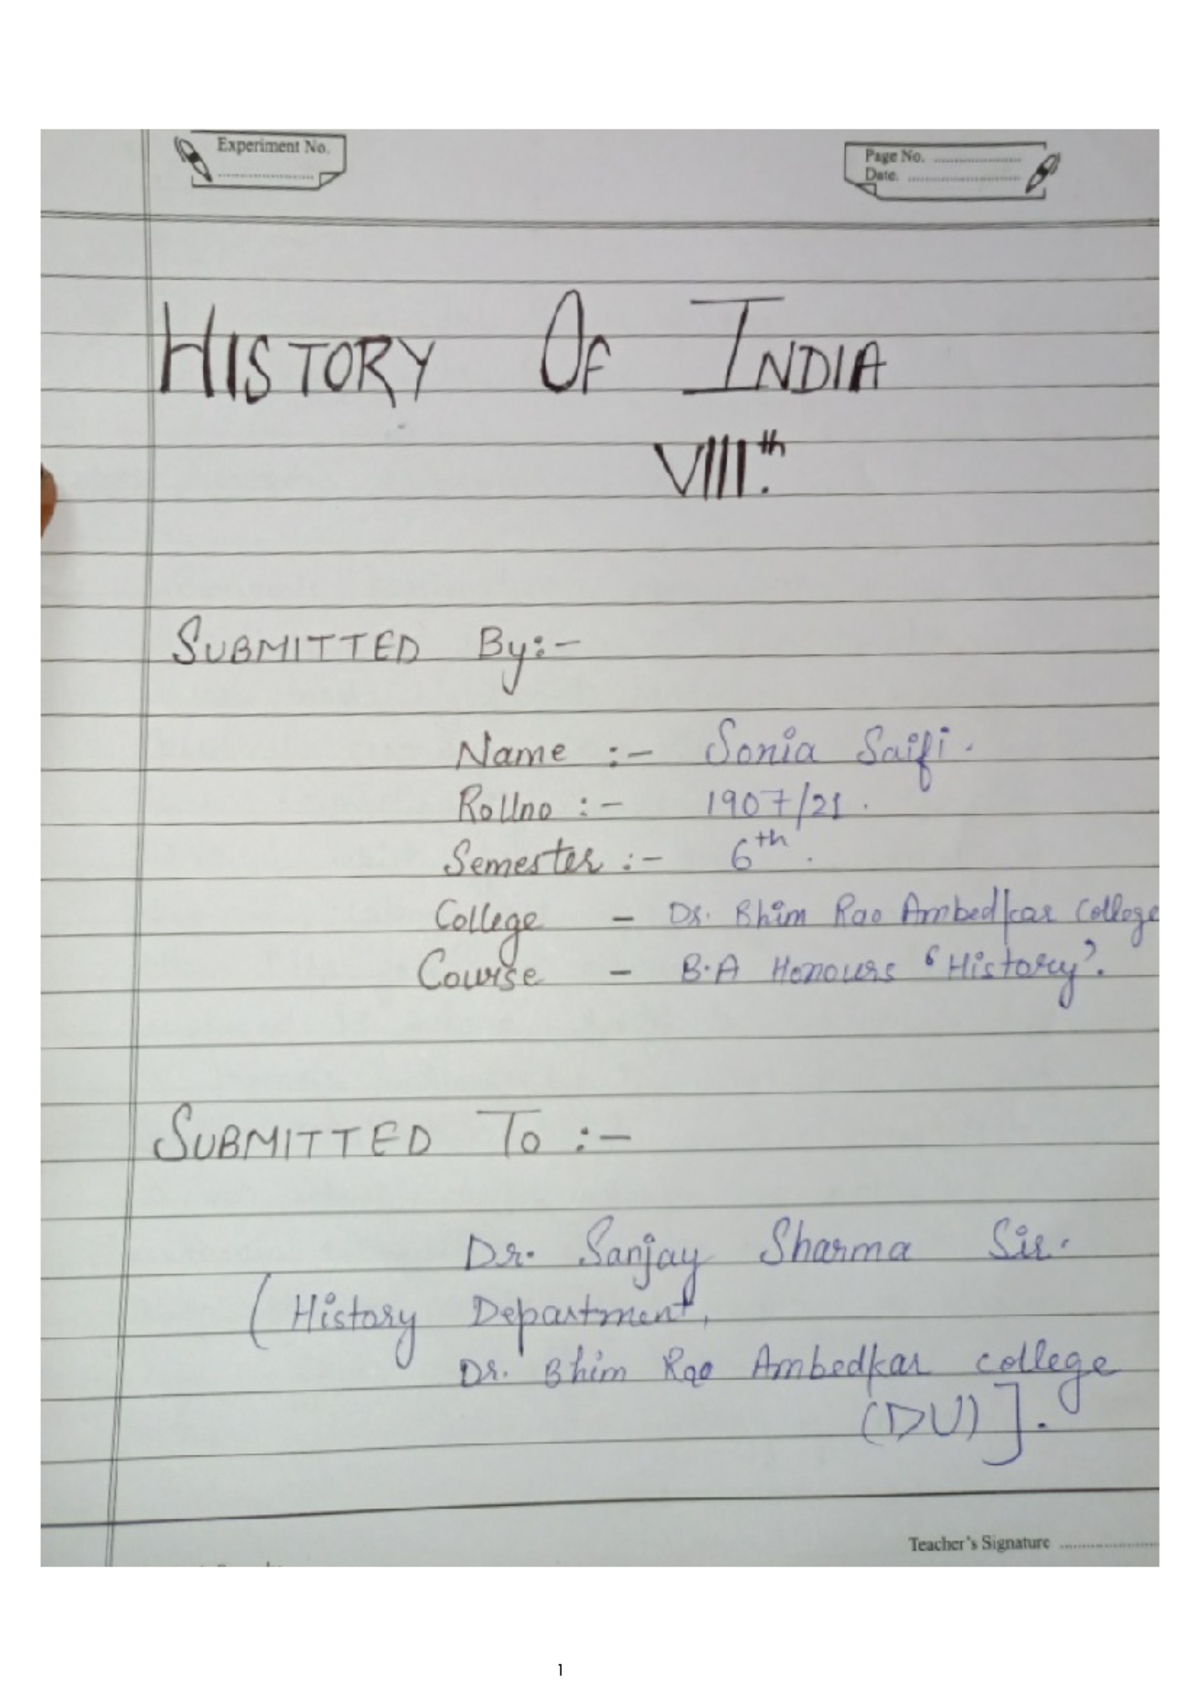 Experiment No. ....................
Page No. ....................
Date. ....................
HISTORY OF INDIA
VIII.th
SUBMITTED By:-
Name :- Sonia Saifi.
Rollno :- 1907/21.
Semester :- 6th.
College - Dr. Bhim Rao Ambedkar College
Course - B.A Honours 'History'.
SUBMITTED To :-
Dr. Sanjay Sharma Sir.
(History Department,
Dr. Bhim Rao Ambedkar college
(DU)].
Teacher's Signature ....................
1